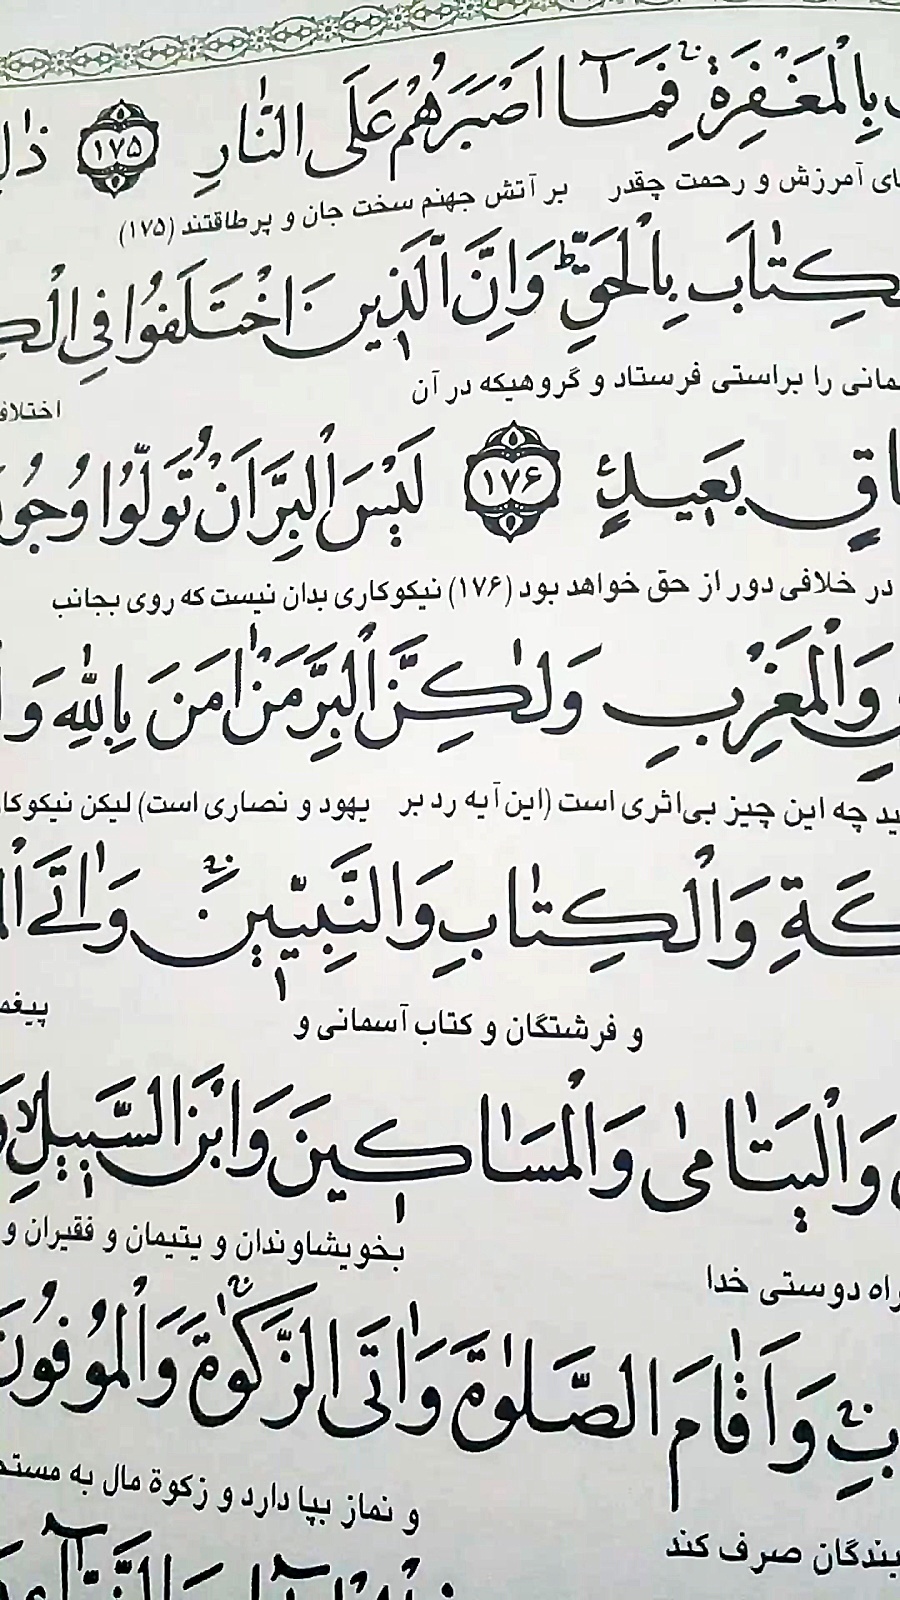 بِالْمَغْفِرَةِ فَمَآ اَصْبَرَهُمْ عَلَى النَّارِ ﴿۱۷۵﴾
آمرزش و رحمت چقدر بر آتش جهنم سخت جان و پرطاقتند (۱۷۵)
بِالْحَقِّ ۗ وَاِنَّ الَّذينَ اخْتَلَفُوا فِى
را براستی فرستاد و گروهیکه در آن
بَعيدٍ ﴿۱۷۶﴾ لَيْسَ الْبِرَّ اَنْ تُوَلُّوا
در خلافی دور از حق خواهد بود (۱۷۶) نیکوکاری بدان نیست که روی بجانب
وَالْمَغْرِبِ وَلٰكِنَّ الْبِرَّ مَنْ اٰمَنَ بِاللّٰهِ وَ
چه این چیز بی‌اثری است (این آیه رد بر یهود و نصاری است) لیکن
وَالْكِتٰابِ وَالنَّبِيّينَ وَاٰتَى
و فرشتگان و کتاب آسمانی و
وَالْيَتٰامىٰ وَالْمَسٰاكينَ وَابْنَ السَّبيلِ
دوستی خدا بخویشاوندان و یتیمان و فقیران و
وَاَقٰامَ الصَّلٰوةَ وَاٰتَى الزَّكٰوةَ وَالْمُوفُونَ
صرف کند و نماز بپا دارد و زکوة مال به